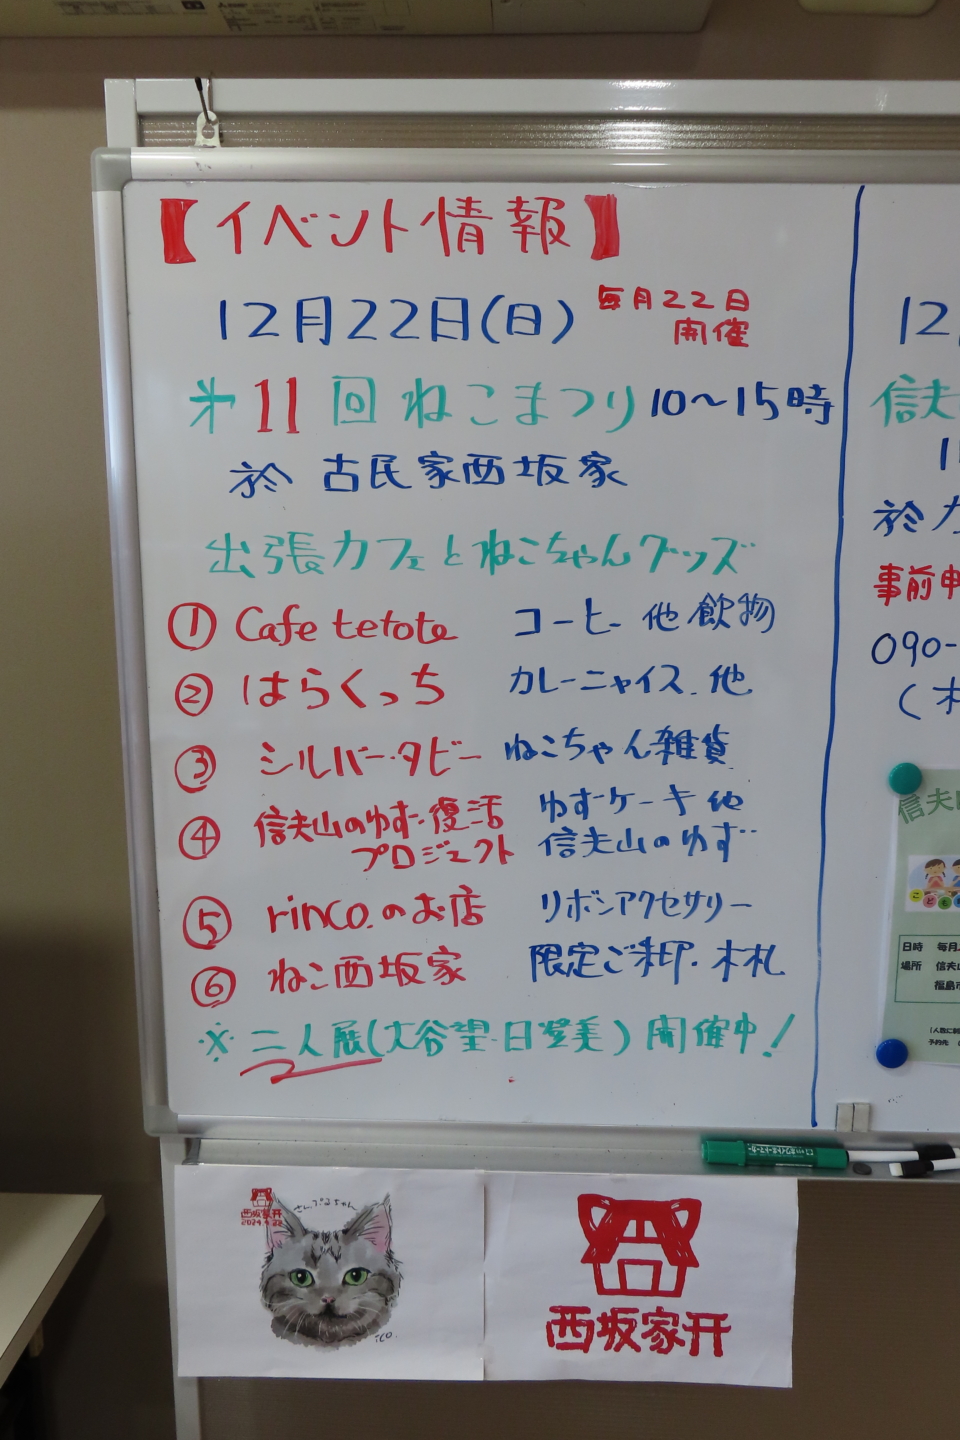 【イベント情報】
12月22日(日) 毎月22日
開催
第11回 ねこまつり 10〜15時
於 古民家西坂家
出張カフェとねこちゃんグッズ
① Cafe tetote コーヒー 他 飲物
② はらくっち カレーニャイス 他
③ シルバー・タビー ねこちゃん雑貨
④ 信夫山のゆず・復活プロジェクト ゆずケーキ他
信夫山のゆず
⑤ rinco.のお店 リボンアクセサリー
⑥ ねこ西坂家 限定ご朱印・木札
※ 二人展(大谷望・日登美)開催中!
12
信夫
於カ
事前申
090-
(木
信夫
こども
日時 毎月
場所 信夫
福島市
予約先
西坂家开
2024.4.22
さんぷるちゃん
西坂家开